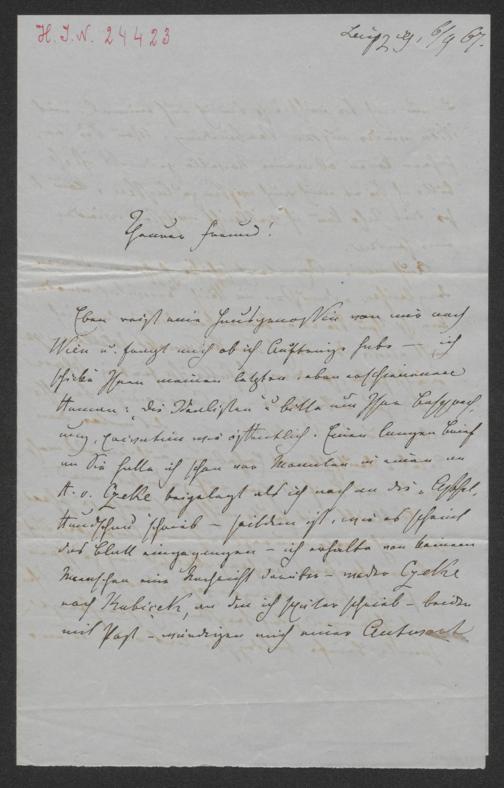 H. I. N. 24423
Leipzig, 6/9 67.
Theurer Freund!
Eben reist eine Hausgenossin von mir nach
Wien u. fragt mich ob ich Aufträge habe — ich
schicke Ihnen meinen letzten eben erschienenen
Roman: „Die Idealisten" u bitte um Ihre Besprech-
ung, privatim wie öffentlich. Einen langen Brief
an Sie hatte ich schon vor Monaten in einen an
H. v. Czeke beigelegt als ich noch an die
Rundschau schrieb — seitdem ist, wie es scheint
das Blatt eingegangen — ich erhalte von keinem
Menschen eine Nachricht darüber — weder Czeke
noch Kubicek, an den ich später schrieb — beide
mit Post — würdigen mich einer Antwort